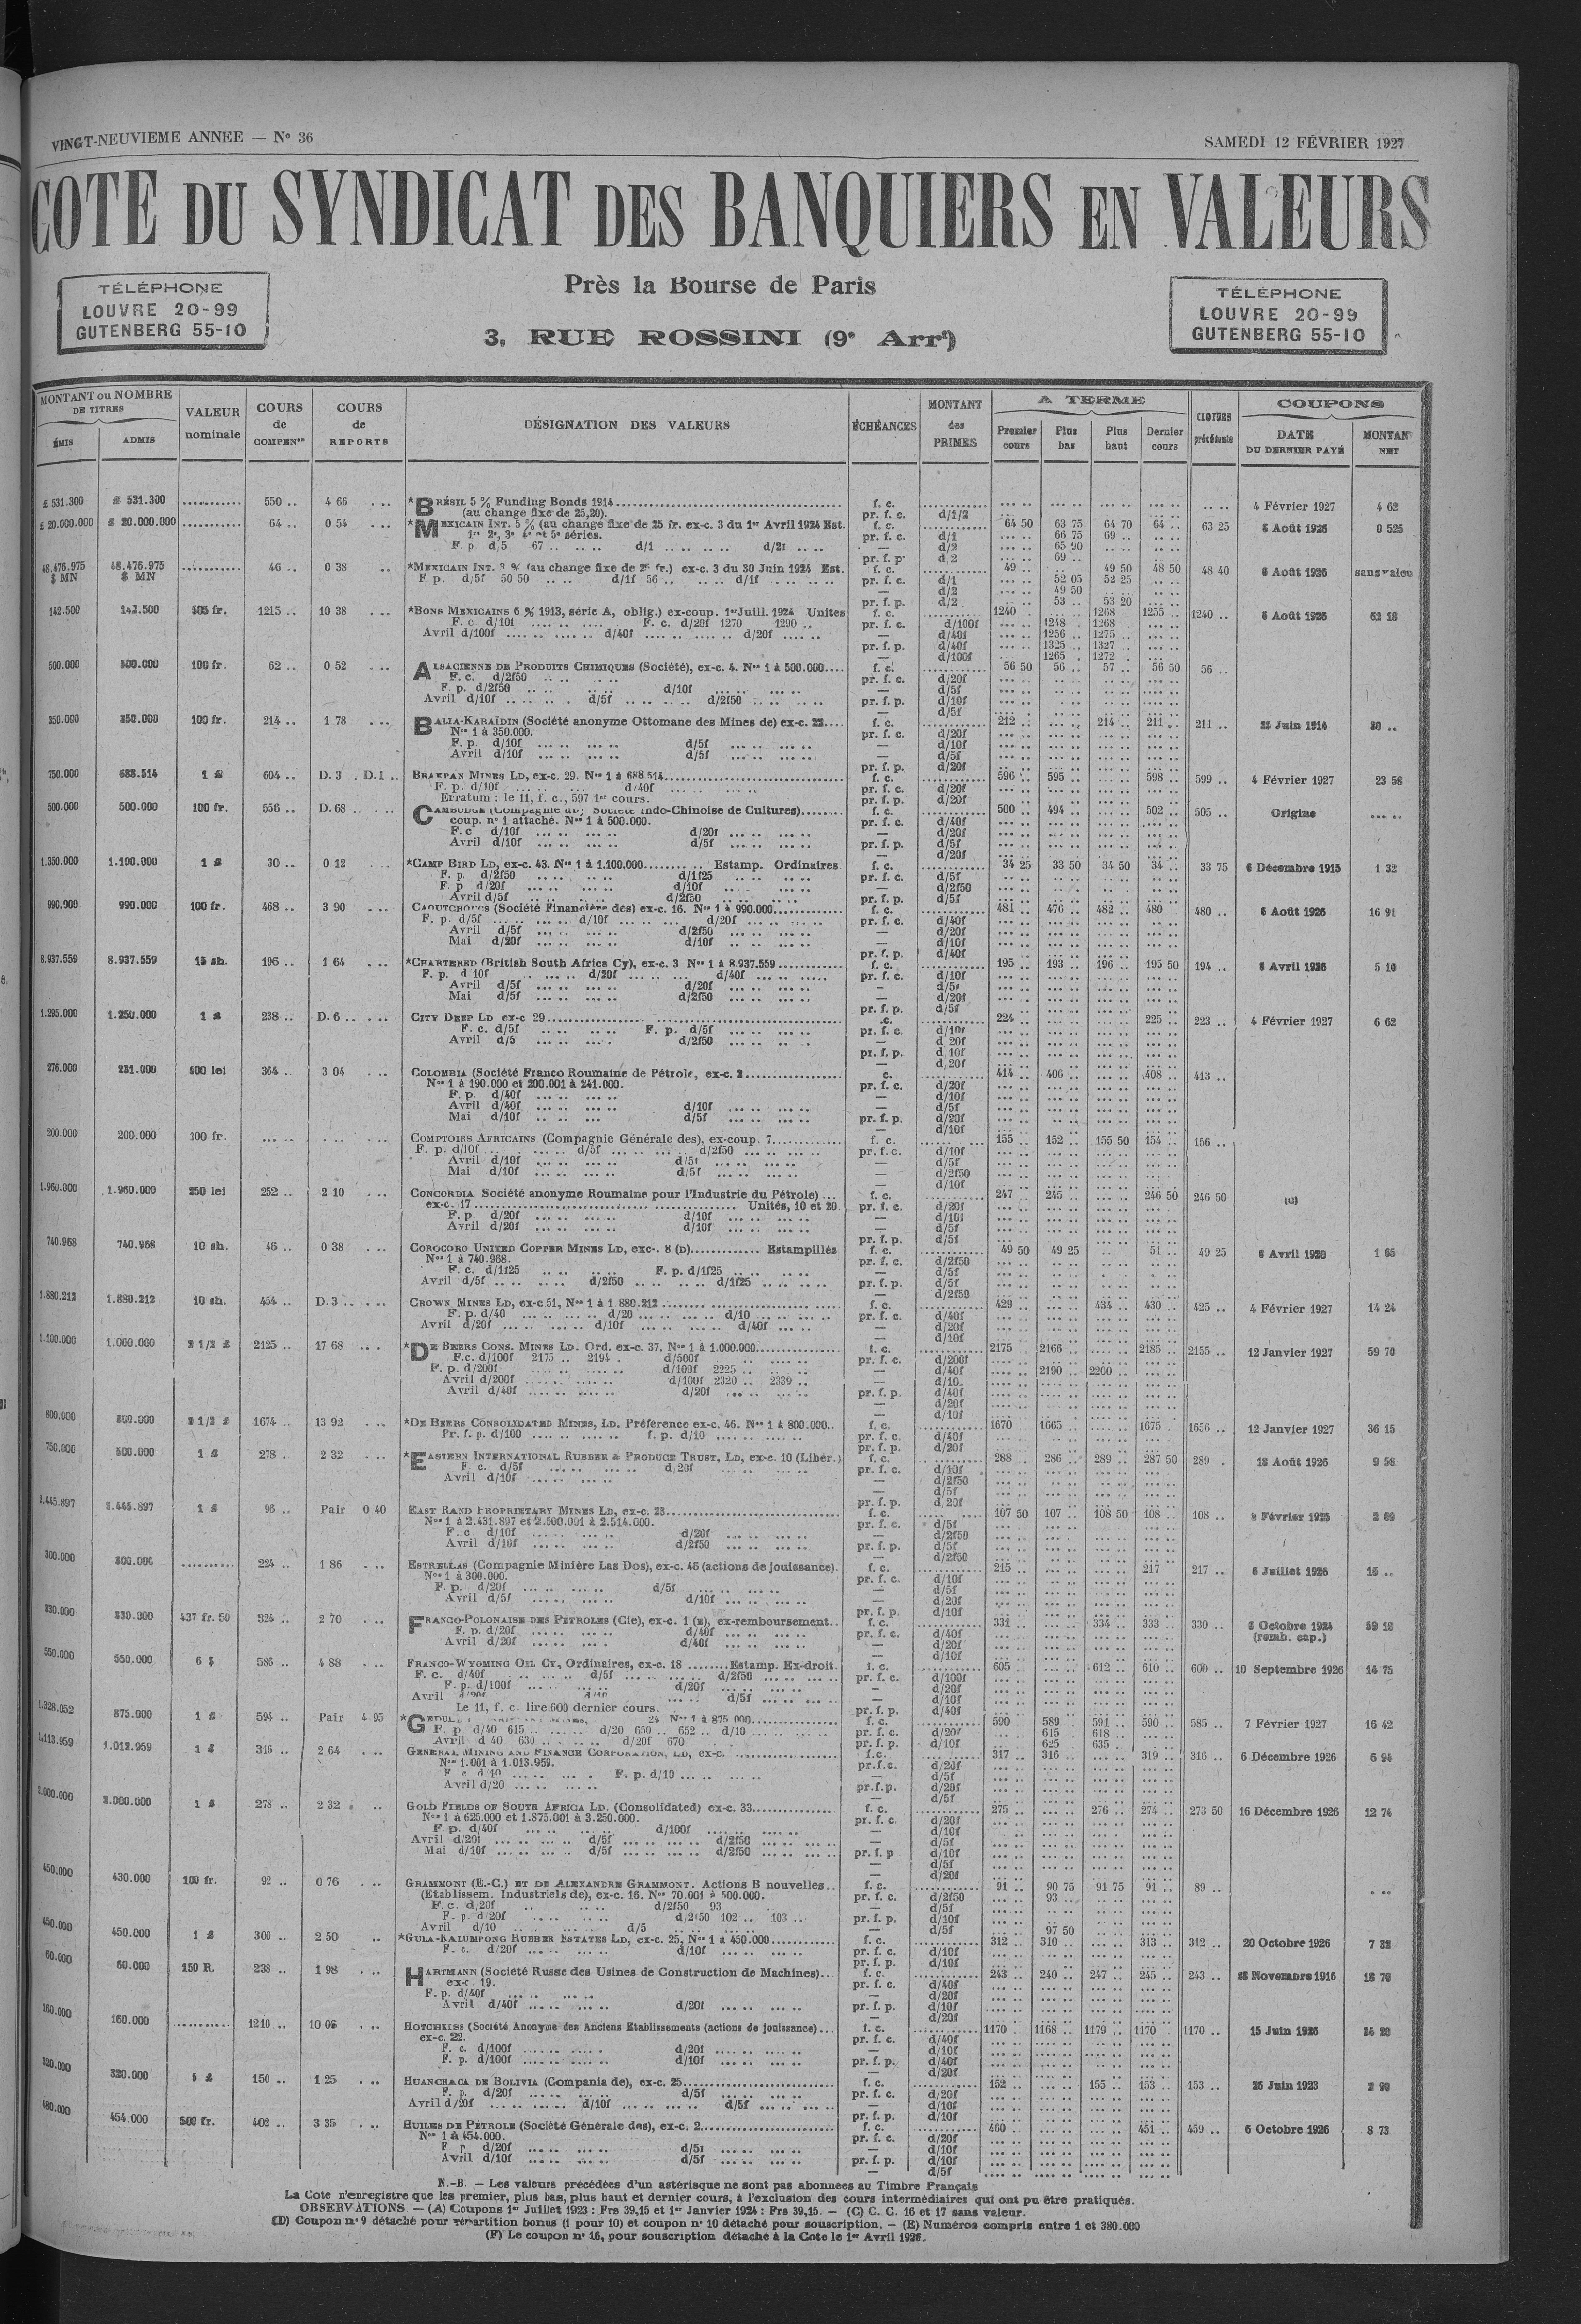 VINGT-NEUVIEME ANNEE — N° 36
SAMEDI 12 FÉVRIER 1927
COTE DU SYNDICAT DES BANQUIERS EN VALEURS
TÉLÉPHONE
LOUVRE 20-99
GUTENBERG 55-10
Près la Bourse de Paris
3, RUE ROSSINI (9e Arrt)
TÉLÉPHONE
LOUVRE 20-99
GUTENBERG 55-10
MONTANT ou NOMBRE DE TITRES ÉMIS ADMIS
VALEUR nominale
COURS de COMPENon
COURS de REPORTS
DÉSIGNATION DES VALEURS
ÉCHÉANCES
MONTANT des PRIMES
A TERME Premier cours Plus bas Plus haut Dernier cours
CLOTURE précédente
COUPONS DATE DU DERNIER PAYÉ MONTAN NET
£ 531.300 £ 531.300 ........... 550 .. 4 66 *BRÉSIL 5 % Funding Bonds 1914 f. c. 4 Février 1927 4 62
(au change fixe de 25,20). pr. f. c. d/1/2
£ 20.000.000 £ 20.000.000 ........... 64 .. 0 54 *MEXICAIN INT. 5 % (au change fixe de 25 fr. ex-c. 3 du 1er Avril 1924 Est. f. c. 64 50 63 75 64 70 64 .. 63 25 5 Août 1926 0 525
1re 2e, 3e 4e et 5e séries. pr. f. c. d/1 66 75 69 ..
F. p d/5 67 .. d/1 d/2f — d/2 65 90
pr. f. p. d/2 69 ..
48.476.975 $ MN 48.476.975 $ MN ........... 46 .. 0 38 *MEXICAIN INT. 3 % (au change fixe de 25 fr.) ex-c. 3 du 30 Juin 1924 Est. f. c. 49 .. 49 50 48 50 48 40 6 Août 1926 sans valeu
F. p. d/5f 50 50 d/1f 56 .. d/1f pr. f. c. d/1 52 05 52 25
— d/2 49 50
pr. f. p. d/2 53 .. 53 20
142.500 142.500 505 fr. 1215 .. 10 38 *BONS MEXICAINS 6 % 1913, série A, oblig.) ex-coup. 1er Juill. 1924 Unites f. c. 1240 1268 1255 .. 1240 .. 5 Août 1926 52 18
F. c. d/10f F. c. d/20f 1270 1290 .. pr. f. c. d/100f 1248 1268
Avril d/100f d/40f d/20f — d/40f 1256 1275
pr. f. p. d/40f 1325 1327
— d/100f 1265 1272
500.000 500.000 100 fr. 62 .. 0 52 ALSACIENNE DE PRODUITS CHIMIQUES (Société), ex-c. 4. Nos 1 à 500.000.... f. c. 56 50 56 .. 57 .. 56 50 56 ..
F. c. d/2f50 pr. f. c. d/20f
F. p. d/2f50 d/10f — d/5f
Avril d/10f d/5f d/2f50 pr. f. p. d/10f
— d/5f
350.000 350.000 100 fr. 214 .. 1 78 BALIA-KARAÏDIN (Société anonyme Ottomane des Mines de) ex-c. 22.... f. c. 212 .. 214 .. 211 .. 211 .. 25 Juin 1914 30 ..
Nos 1 à 350.000. pr. f. c. d/20f
F. p. d/10f d/5f — d/10f
Avril d/10f d/5f — d/5f
pr. f. p. d/20f
750.000 688.514 1 £ 604 .. D. 3 . D.1 .. BRAKPAN MINES LD, ex-c. 29. Nos 1 à 688.514 f. c. 596 .. 595 .. 598 .. 599 .. 4 Février 1927 23 58
F. p. d/10f d/40f pr. f. c. d/20f
Erratum : le 11, f. c., 597 1er cours. pr. f. p. d/20f
500.000 500.000 100 fr. 556 .. D. 68 .. Indo-Chinoise de Cultures) f. c. 500 .. 494 .. 502 .. 505 .. Origine
coup. n° 1 attaché. Nos 1 à 500.000. pr. f. c. d/40f
F. c d/10f d/20f — d/20f
Avril d/10f d/5f pr. f. p. d/5f
— d/20f
1.350.000 1.100.000 1 £ 30 .. 0 12 *CAMP BIRD LD, ex-c. 43. Nos 1 à 1.100.000 Estamp. Ordinaires f. c. 34 25 33 50 34 50 34 .. 33 75 6 Décembre 1915 1 32
F. p. d/2f50 d/1f25 pr. f. c. d/5f
F. p d/20f d/10f — d/2f50
Avril d/5f d/2f50 pr. f. p. d/5f
990.000 990.000 100 fr. 468 .. 3 90 CAOUTCHOUCS (Société Financière des) ex-c. 16. Nos 1 à 990.000 f. c. 481 .. 476 .. 482 .. 480 480 .. 5 Août 1926 16 91
F. p. d/5f d/10f d/20f pr. f. c. d/40f
Avril d/5f d/2f50 — d/20f
Mai d/20f d/10f — d/10f
pr. f. p. d/40f
8.937.559 8.937.559 15 sh. 196 .. 1 64 *CHARTERED (British South Africa Cy), ex-c. 3 Nos 1 à 8.937.559 f. c. 195 .. 193 .. 196 .. 195 50 194 .. 8 Avril 1926 5 10
F. p. d 10f d/20f d/40f pr. f. c. d/10f
Avril d/5f d/20f — d/5f
Mai d/5f d/2f50 — d/20f
pr. f. p. d/5f
1.295.000 1.250.000 1 £ 238 .. D. 6 .. CITY DEEP LD ex-c 29 c. 224 .. 225 .. 223 .. 4 Février 1927 6 62
F. c. d/5f F. p. d/5f pr. f. c. d/10f
Avril d/5 d/2f50 — d 20f
pr. f. p. d 10f
— d 20f
276.000 231.000 500 lei 364 .. 3 04 COLOMBIA (Société Franco Roumaine de Pétrole, ex-c. 2 c. 414 .. 406 .. 408 .. 413 ..
Nos 1 à 190.000 et 200.001 à 241.000. pr. f. c. d/20f
F. p. d/40f — d/10f
Avril d/40f d/10f — d/5f
Mai d/10f d/5f pr. f. p. d/20f
— d/10f
200.000 200.000 100 fr. COMPTOIRS AFRICAINS (Compagnie Générale des), ex-coup. 7 f. c. 155 .. 152 .. 155 50 154 .. 156 ..
F. p. d/10f d/5f d/2f50 pr. f. c. d/10f
Avril d/10f d/5f — d/5f
Mai d/10f d/5f — d/2f50
— d/10f
1.960.000 1.960.000 250 lei 252 .. 2 10 CONCORDIA Société anonyme Roumaine pour l'Industrie du Pétrole) ... f. c. 247 245 .. 246 50 246 50 (C)
ex-c. 17 Unités, 10 et 20 pr. f. c. d/20f
F. p d/20f d/10f — d/10f
Avril d/20f d/10f — d/5f
pr. f. p. d/5f
740.968 740.968 10 sh. 46 .. 0 38 COROCORO UNITED COPPER MINES LD, exc-. 8 (D) Estampillés f. c. 49 50 49 25 51 .. 49 25 6 Avril 1920 1 65
Nos 1 à 740.968. pr. f. c. d/2f50
F. c. d/1f25 F. p. d/1f25 — d/5f
Avril d/5f d/2f50 d/1f25 pr. f. p. d/5f
— d/2f50
1.880.212 1.880.212 10 sh. 454 .. D. 3 .. CROWN MINES LD, ex-c 51, Nos 1 à 1 880.212 f. c. 429 434 .. 430 .. 425 .. 4 Février 1927 14 24
F. p. d/40 d/20 d/10 pr. f. c. d/40f
Avril d/20f d/10f d/40f — d/20f
— d/10f
1.100.000 1.000.000 2 1/2 £ 2125 .. 17 68 *DE BEERS CONS. MINES LD. Ord. ex-c. 37. Nos 1 à 1.000.000 f. c. 2175 2166 .. 2185 .. 2155 .. 12 Janvier 1927 59 70
F.c. d/100f 2175 .. 2194 . d/500f pr. f. c. d/200f
F. p. d/200f d/100f 2225 .. — d/40f 2190 .. 2200
Avril d/200f d/100f 2320 .. 2339 .. — d/10
Avril d/40f d/20f pr. f. p. d/40f
— d/20f
— d/10f
800.000 800.000 2 1/2 £ 1674 .. 13 92 *DE BEERS CONSOLIDATED MINES, LD. Préférence ex-c. 46. Nos 1 à 800.000.. f. c. 1670 1665 1675 . 1656 .. 12 Janvier 1927 36 15
Pr. f. p. d/100 f. p. d/10 pr. f. c. d/40f
pr. f. p. d/20f
750.000 500.000 1 £ 278 . 2 32 *EASTERN INTERNATIONAL RUBBER & PRODUCE TRUST, LD, ex-c. 10 (Libér.) f. c. 288 286 .. 289 .. 287 50 289 . 18 Août 1926 9 56
F. c. d/5f d/20f pr. f. c. d/10f
Avril d/10f — d/2f50
— d/5f
pr. f. p. d 20f
2.445.897 2.445.897 1 £ 96 .. Pair 0 40 EAST RAND PROPRIETARY MINES LD, ex-c. 23 f. c. 107 50 107 .. 108 50 108 .. 108 .. Février 1925 2 69
Nos 1 à 2.431.897 et 2.500.001 à 2.514.000. pr. f. c. d/5f
F. c d/10f d/20f — d/2f50
Avril d/10f d/2f50 pr. f. p. d/5f
— d/2f50
300.000 300.000 .......... 224 .. 1 86 ESTRELLAS (Compagnie Minière Las Dos), ex-c. 46 (actions de jouissance). f. c. 215 217 217 .. 6 Juillet 1926 15 ..
Nos 1 à 300.000. pr. f. c. d/10f
F. p. d/20f d/5f — d/5f
Avril d/5f d/10f — d/20f
pr. f. p. d/10f
330.000 330.000 437 fr. 50 324 .. 2 70 FRANCO-POLONAISE DES PÉTROLES (Cie), ex-c. 1 (E), ex-remboursement.. f. c. 331 334 .. 333 .. 330 .. 5 Octobre 1924 59 18
F. p. d/20f d/40f pr. f. c. d/40f (remb. cap.)
Avril d/20f d/40f — d/20f
— d/10f
550.000 550.000 6 $ 586 .. 4 88 FRANCO-WYOMING OIL CY, Ordinaires, ex-c. 18 Estamp. Ex-droit. f. c. 605 612 .. 610 .. 600 .. 10 Septembre 1926 14 75
F. c. d/40f d/5f d/2f50 pr. f. c. d/100f
F. p. d/100f d/20f — d/20f
Avril d/5f — d/10f
Le 11, f. c. lire 600 dernier cours. pr. f. p. d/40f
1.328.052 875.000 1 £ 594 .. Pair 4 95 24 Nos 1 à 875 000 f. c. 590 589 591 .. 590 .. 585 .. 7 Février 1927 16 42
F. p d/40 615 .. d/20 650 .. 652 .. d/10 pr. f. c. d/20f 615 618
Avril d 40 630 d/20f 670 pr. f. p. d/10f 625 635
1.113.959 1.012.959 1 £ 316 .. 2 64 GENERAL MINING AND FINANCE CORPORATION, LD, ex-c. f. c. 317 .. 316 .. 319 .. 316 .. 6 Décembre 1926 6 94
Nos 1.001 à 1.013.959. pr.f.c. d/20f
F c d/10 F. p. d/10 — d/5f
Avril d/20 pr.f.p. d/20f
— d/5f
2.000.000 2.000.000 1 £ 278 .. 2 32 GOLD FIELDS OF SOUTH AFRICA LD. (Consolidated) ex-c. 33 f. c. 275 276 .. 274 .. 273 50 16 Décembre 1926 12 74
Nos 1 à 625.000 et 1.875.001 à 3.250.000. pr. f. c. d/20f
F p. d/40f d/100f — d/10f
Avril d/20f d/5f d/2f50 — d/5f
Mai d/10f d/5f d/2f50 pr. f. p d/10f
— d/5f
— d/20f
450.000 430.000 100 fr. 92 .. 0 76 GRAMMONT (E.-C.) ET DE ALEXANDRE GRAMMONT. Actions B nouvelles.. f. c. 91 .. 90 75 91 75 91 .. 89 ..
(Etablissem. Industriels de), ex-c. 16. Nos 70.001 à 500.000. pr. f. c. d/2f50 93
F. c. d/20f d/2f50 93 — d/5f
F. p. d/20f d/2f50 102 .. 103 .. pr. f. p. d/10f
Avril d/10 d/5 — d/5f 97 50
450.000 450.000 1 £ 300 .. 2 50 *GULA-KALUMPONG RUBBER ESTATES LD, ex-c. 25, Nos 1 à 450.000 f. c. 312 .. 310 313 .. 312 .. 20 Octobre 1926 7 32
F. c. d/20f d/10f pr. f. c. d/10f
pr. f. p. d/10f
60.000 60.000 150 R. 238 .. 1 98 HARTMANN (Société Russe des Usines de Construction de Machines) f. c. 243 .. 240 .. 247 .. 245 .. 243 .. 28 Novembre 1916 18 70
ex-c. 19. pr. f. c. d/40f
F. p. d/40f — d/20f
Avril d/40f d/20f pr. f. p. d/10f
— d/20f
160.000 160.000 .......... 1210 .. 10 06 HOTCHKISS (Société Anonyme des Anciens Etablissements (actions de jouissance)... f. c. 1170 1168 .. 1179 .. 1170 1170 .. 15 Juin 1926 34 20
ex-c. 22. pr. f. c. d/40f
F. c. d/100f d/20f — d/10f
F. p. d/100f d/10f pr. f. p. d/40f
— d/20f
320.000 320.000 5 £ 150 .. 1 25 HUANCHACA DE BOLIVIA (Compania de), ex-c. 25 f. c. 152 .. 155 .. 153 .. 153 .. 26 Juin 1923 2 90
F. p. d/20f d/5f pr. f. c. d/20f
Avril d/20f d/10f d/5f — d/10f
pr. f. p. d/10f
480.000 454.000 500 fr. 402 .. 3 35 HUILES DE PÉTROLE (Société Générale des), ex-c. 2 f. c. 460 451 .. 459 .. 6 Octobre 1926 8 73
Nos 1 à 454.000. pr. f. c. d/20f
F p d/20f d/5f — d/10f
Avril d/10f d/5f pr. f. p. d/10f
— d/5f
N.-B. — Les valeurs précédées d'un astérisque ne sont pas abonnees au Timbre Français
La Cote n'enregistre que les premier, plus bas, plus haut et dernier cours, à l'exclusion des cours intermédiaires qui ont pu être pratiqués.
OBSERVATIONS — (A) Coupons 1er Juillet 1923 : Frs 39,15 et 1er Janvier 1924 : Frs 39,15. — (C) C. C. 16 et 17 sans valeur.
(D) Coupon n° 9 détaché pour répartition bonus (1 pour 10) et coupon n° 10 détaché pour souscription. — (E) Numéros compris entre 1 et 380.000
(F) Le coupon n° 16, pour souscription détaché à la Cote le 1er Avril 1926.